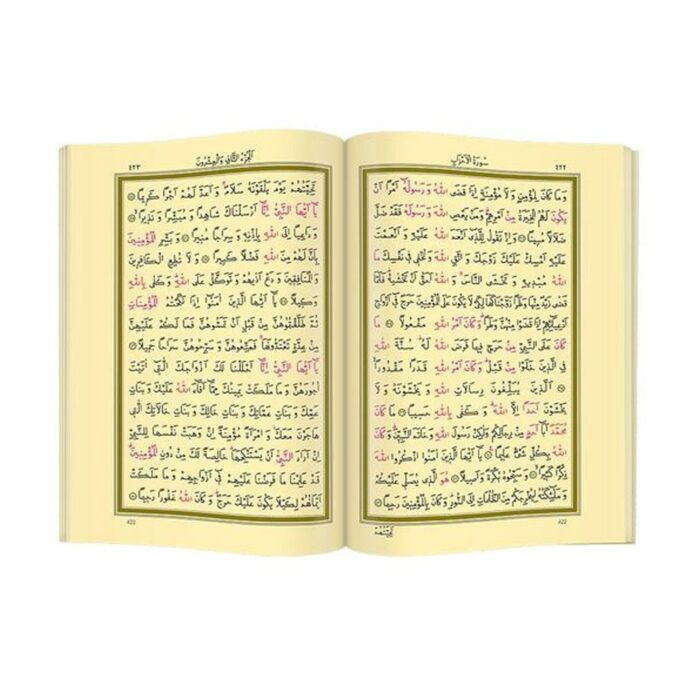 سُورَةُ الْاَحْزَابِ ٤٢٢
وَمَا كَانَ لِمُؤْمِنٍ وَلَا مُؤْمِنَةٍ اِذَا قَضَى اللّٰهُ وَرَسُولُهُٓ اَمْرًا اَنْ
يَكُونَ لَهُمُ الْخِيَرَةُ مِنْ اَمْرِهِمْ وَمَنْ يَعْصِ اللّٰهَ وَرَسُولَهُ فَقَدْ ضَلَّ
ضَلَالًا مُبِينًا ۝ وَاِذْ تَقُولُ لِلَّذِٓى اَنْعَمَ اللّٰهُ عَلَيْهِ وَاَنْعَمْتَ
عَلَيْهِ اَمْسِكْ عَلَيْكَ زَوْجَكَ وَاتَّقِ اللّٰهَ وَتُخْفِى فِى نَفْسِكَ مَا
اللّٰهُ مُبْدِيهِ وَتَخْشَى النَّاسَ وَاللّٰهُ اَحَقُّ اَنْ تَخْشٰيهُ فَلَمَّا
قَضٰى زَيْدٌ مِنْهَا وَطَرًا زَوَّجْنَاكَهَا لِكَىْ لَا يَكُونَ عَلَى الْمُؤْمِنِينَ حَرَجٌ فِٓى اَزْوَاجِ
اَدْعِيَٓائِهِمْ اِذَا قَضَوْا مِنْهُنَّ وَطَرًا وَكَانَ اَمْرُ اللّٰهِ مَفْعُولًا ۝ مَا
كَانَ عَلَى النَّبِىِّ مِنْ حَرَجٍ فِيمَا فَرَضَ اللّٰهُ لَهُ سُنَّةَ اللّٰهِ
فِى الَّذِينَ خَلَوْا مِنْ قَبْلُ وَكَانَ اَمْرُ اللّٰهِ قَدَرًا مَقْدُورًا
۝ اَلَّذِينَ يُبَلِّغُونَ رِسَالَاتِ اللّٰهِ وَيَخْشَوْنَهُ وَلَا
يَخْشَوْنَ اَحَدًا اِلَّا اللّٰهَ وَكَفٰى بِاللّٰهِ حَسِيبًا ۝ مَا كَانَ
مُحَمَّدٌ اَبَٓا اَحَدٍ مِنْ رِجَالِكُمْ وَلٰكِنْ رَسُولَ اللّٰهِ وَخَاتَمَ النَّبِيِّنَ وَكَانَ
اللّٰهُ بِكُلِّ شَىْءٍ عَلِيمًا ۝ يَٓا اَيُّهَا الَّذِينَ اٰمَنُوا اذْكُرُوا اللّٰهَ
ذِكْرًا كَثِيرًا ۝ وَسَبِّحُوهُ بُكْرَةً وَاَصِيلًا ۝ هُوَ الَّذِى يُصَلِّى عَلَيْكُمْ
وَمَلٰٓئِكَتُهُ لِيُخْرِجَكُمْ مِنَ الظُّلُمَاتِ اِلَى النُّورِ وَكَانَ بِالْمُؤْمِنِينَ رَحِيمًا ۝
422
تَحِيَّتُهُمْ
اَلْجُزْءُ الثَّانِى وَالْعِشْرُونَ ٤٢٣
تَحِيَّتُهُمْ يَوْمَ يَلْقَوْنَهُ سَلَامٌ وَاَعَدَّ لَهُمْ اَجْرًا كَرِيمًا ۝
يَٓا اَيُّهَا النَّبِىُّ اِنَّٓا اَرْسَلْنَاكَ شَاهِدًا وَمُبَشِّرًا وَنَذِيرًا ۝
وَدَاعِيًا اِلَى اللّٰهِ بِاِذْنِهِ وَسِرَاجًا مُنِيرًا ۝ وَبَشِّرِ الْمُؤْمِنِينَ
بِاَنَّ لَهُمْ مِنَ اللّٰهِ فَضْلًا كَبِيرًا ۝ وَلَا تُطِعِ الْكَافِرِينَ
وَالْمُنَافِقِينَ وَدَعْ اَذٰيهُمْ وَتَوَكَّلْ عَلَى اللّٰهِ وَكَفٰى بِاللّٰهِ
وَكِيلًا ۝ يَٓا اَيُّهَا الَّذِينَ اٰمَنُٓوا اِذَا نَكَحْتُمُ الْمُؤْمِنَاتِ
ثُمَّ طَلَّقْتُمُوهُنَّ مِنْ قَبْلِ اَنْ تَمَسُّوهُنَّ فَمَا لَكُمْ عَلَيْهِنَّ
مِنْ عِدَّةٍ تَعْتَدُّونَهَا فَمَتِّعُوهُنَّ وَسَرِّحُوهُنَّ سَرَاحًا جَمِيلًا ۝
يَٓا اَيُّهَا النَّبِىُّ اِنَّٓا اَحْلَلْنَا لَكَ اَزْوَاجَكَ الّٰتِٓى اٰتَيْتَ
اُجُورَهُنَّ وَمَا مَلَكَتْ يَمِينُكَ مِمَّٓا اَفَٓاءَ اللّٰهُ عَلَيْكَ وَبَنَاتِ
عَمِّكَ وَبَنَاتِ عَمَّاتِكَ وَبَنَاتِ خَالِكَ وَبَنَاتِ خَالَاتِكَ الّٰتِى
هَاجَرْنَ مَعَكَ وَامْرَاَةً مُؤْمِنَةً اِنْ وَهَبَتْ نَفْسَهَا لِلنَّبِىِّ
اِنْ اَرَادَ النَّبِىُّ اَنْ يَسْتَنْكِحَهَا خَالِصَةً لَكَ مِنْ دُونِ الْمُؤْمِنِينَ
قَدْ عَلِمْنَا مَا فَرَضْنَا عَلَيْهِمْ فِٓى اَزْوَاجِهِمْ وَمَا مَلَكَتْ
اَيْمَانُهُمْ لِكَيْلَا يَكُونَ عَلَيْكَ حَرَجٌ وَكَانَ اللّٰهُ غَفُورًا رَحِيمًا ۝
423